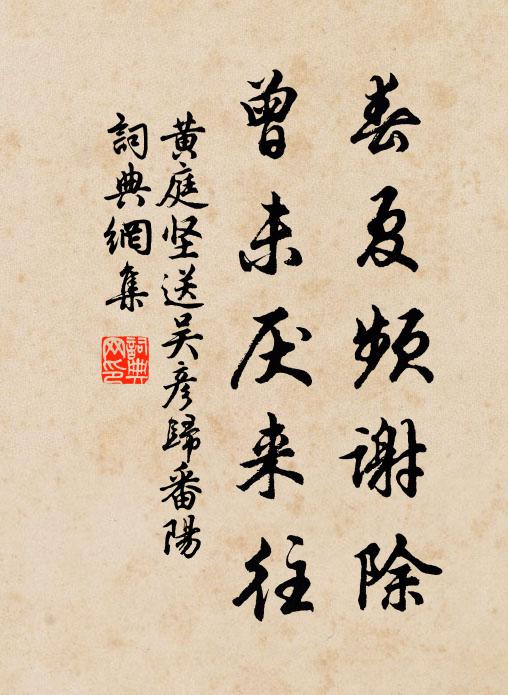 春夏频谢除
曾未厌来往
黄庭坚送吴彦歸番陽
詞典網集
詞典
网印